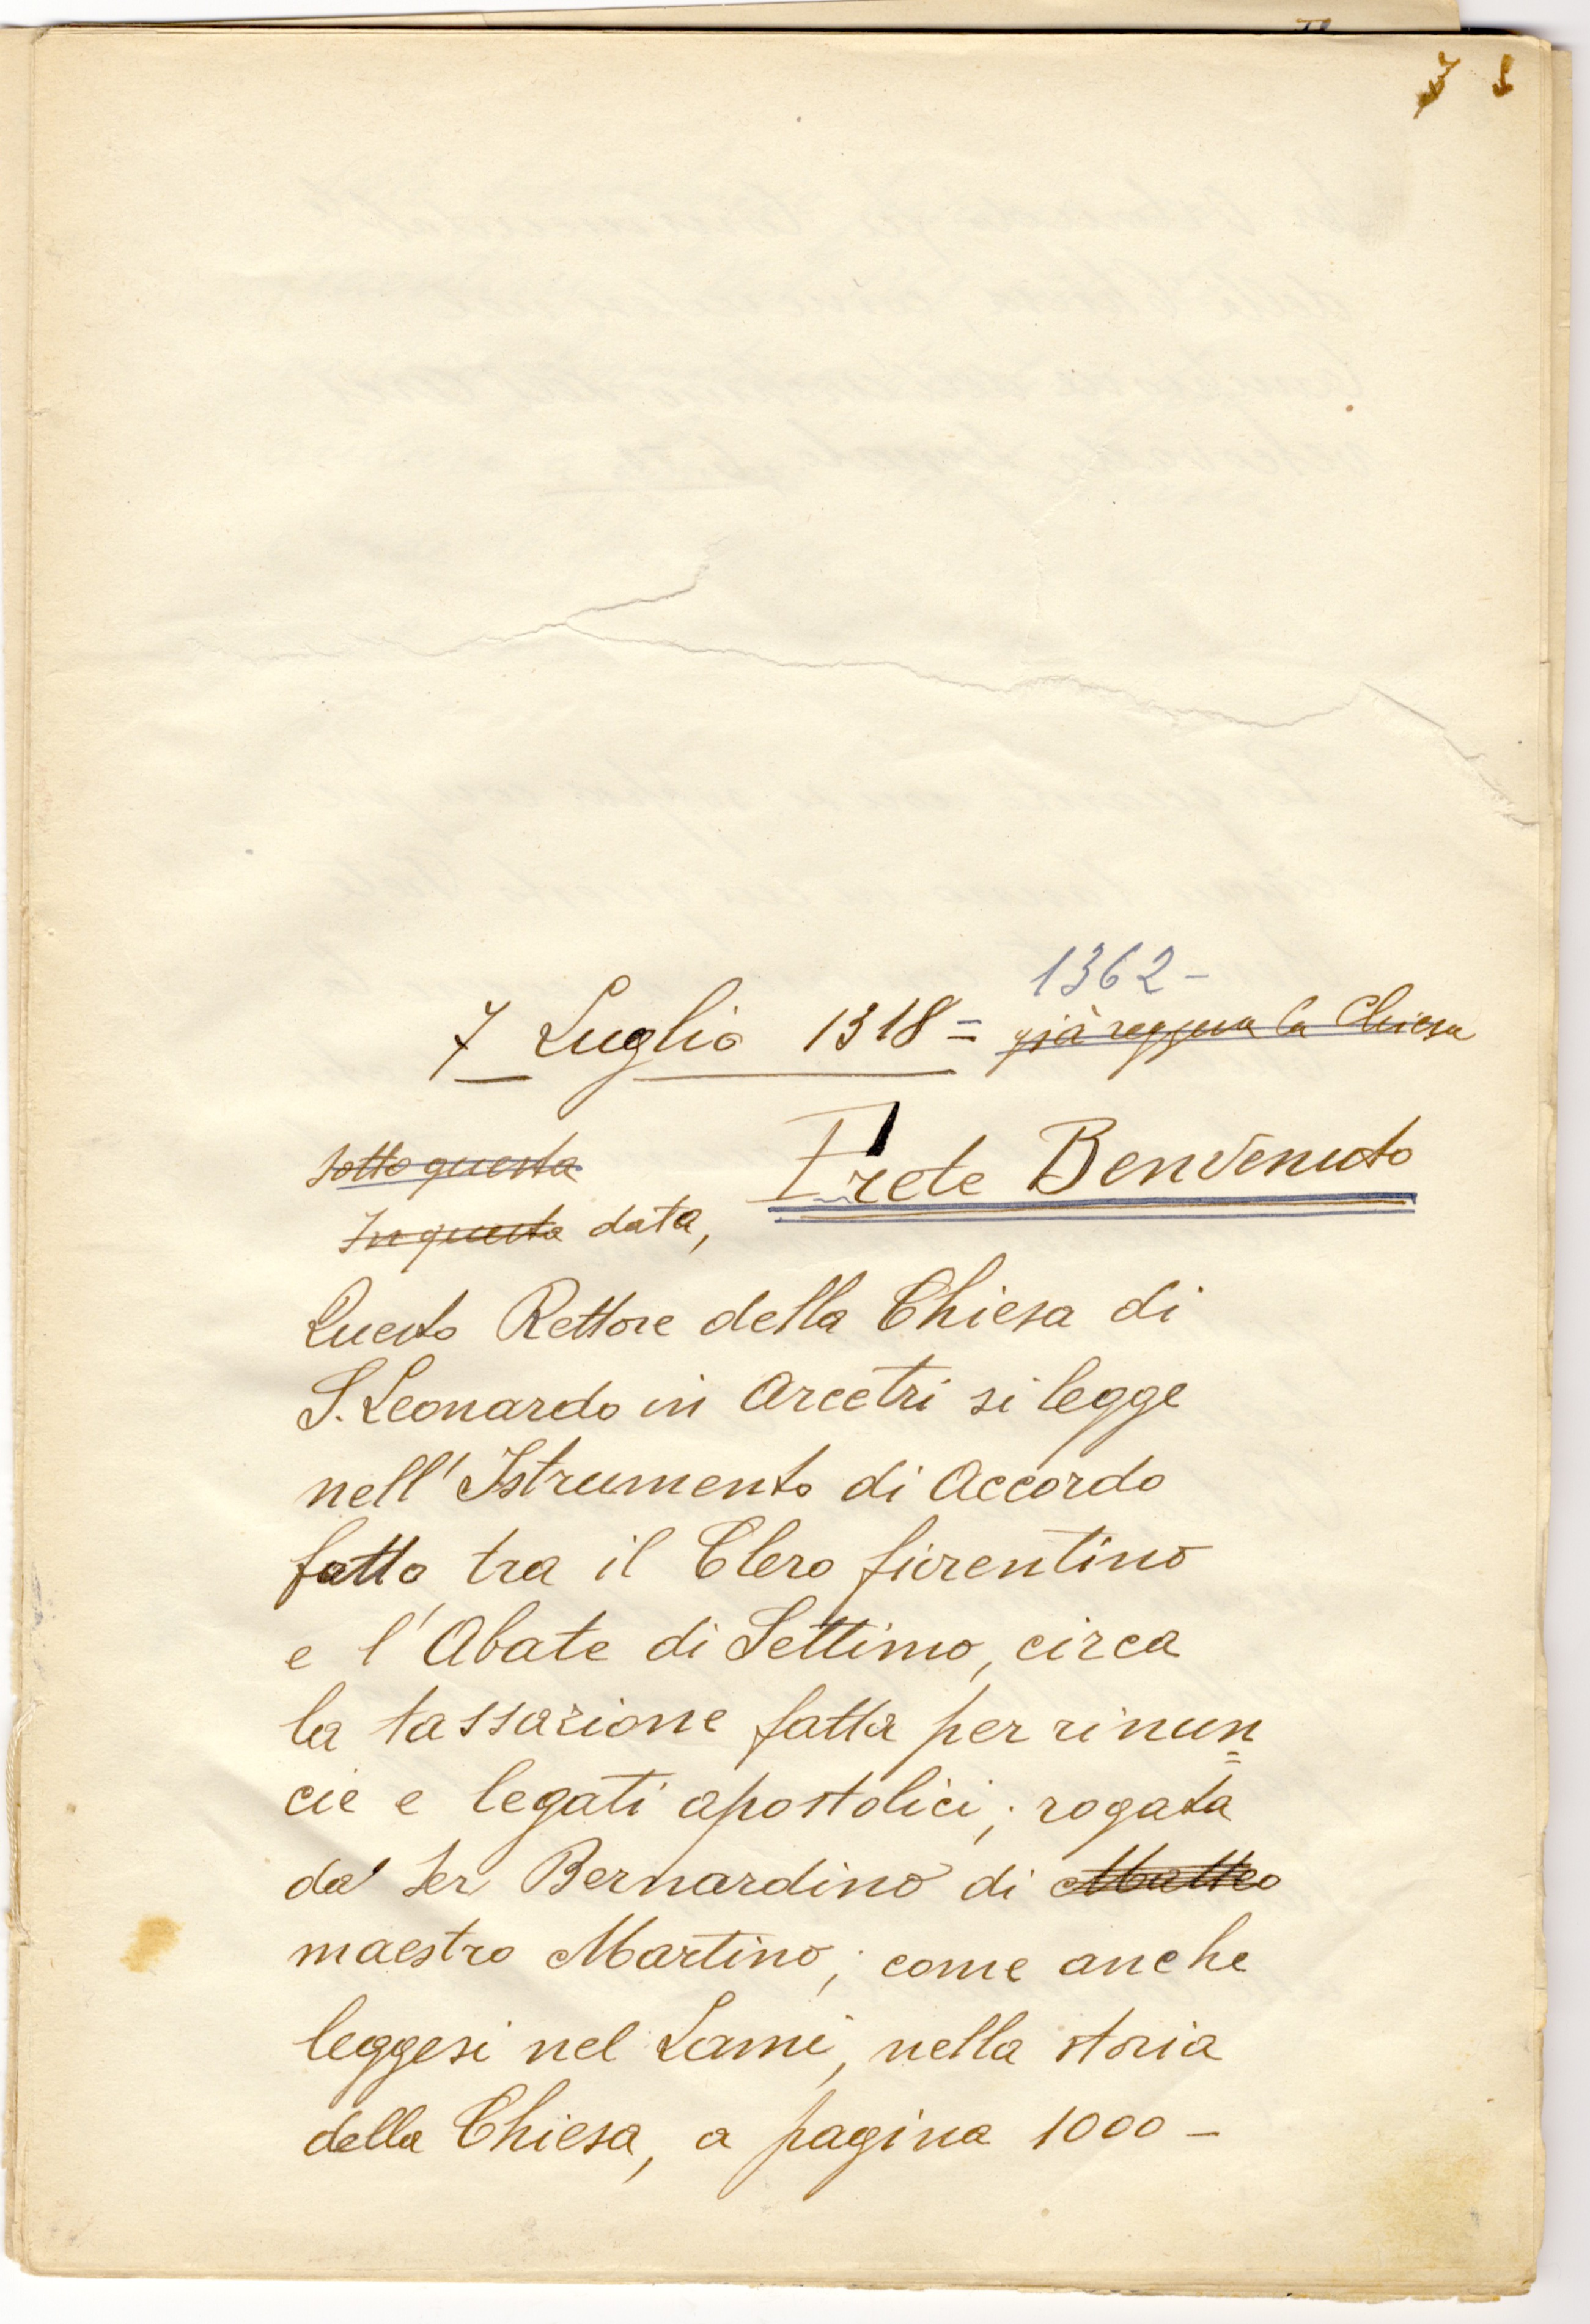 1362 -
7 Luglio 1318 = già reggeva la Chiesa
sotto questa
Prete Benvenuto
In questa data,
Questo Rettore della Chiesa di
S. Leonardo in Arcetri si legge
nell' Istrumento di Accordo
fatto tra il Clero fiorentino
e l' Abate di Settimo, circa
la tassazione fatta per rinun=
cie e legati apostolici; rogata
da' Ser Bernardino di Matteo
maestro Martino; come anche
leggesi nel Lami, nella storia
della Chiesa, a pagina 1000 -